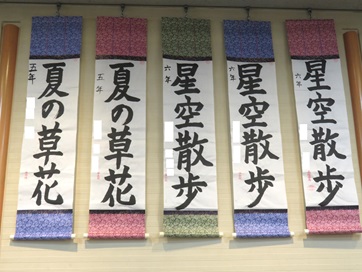 夏の草花
五年
夏の草花
五年
星空散歩
六年
星空散歩
六年
星空散歩
六年